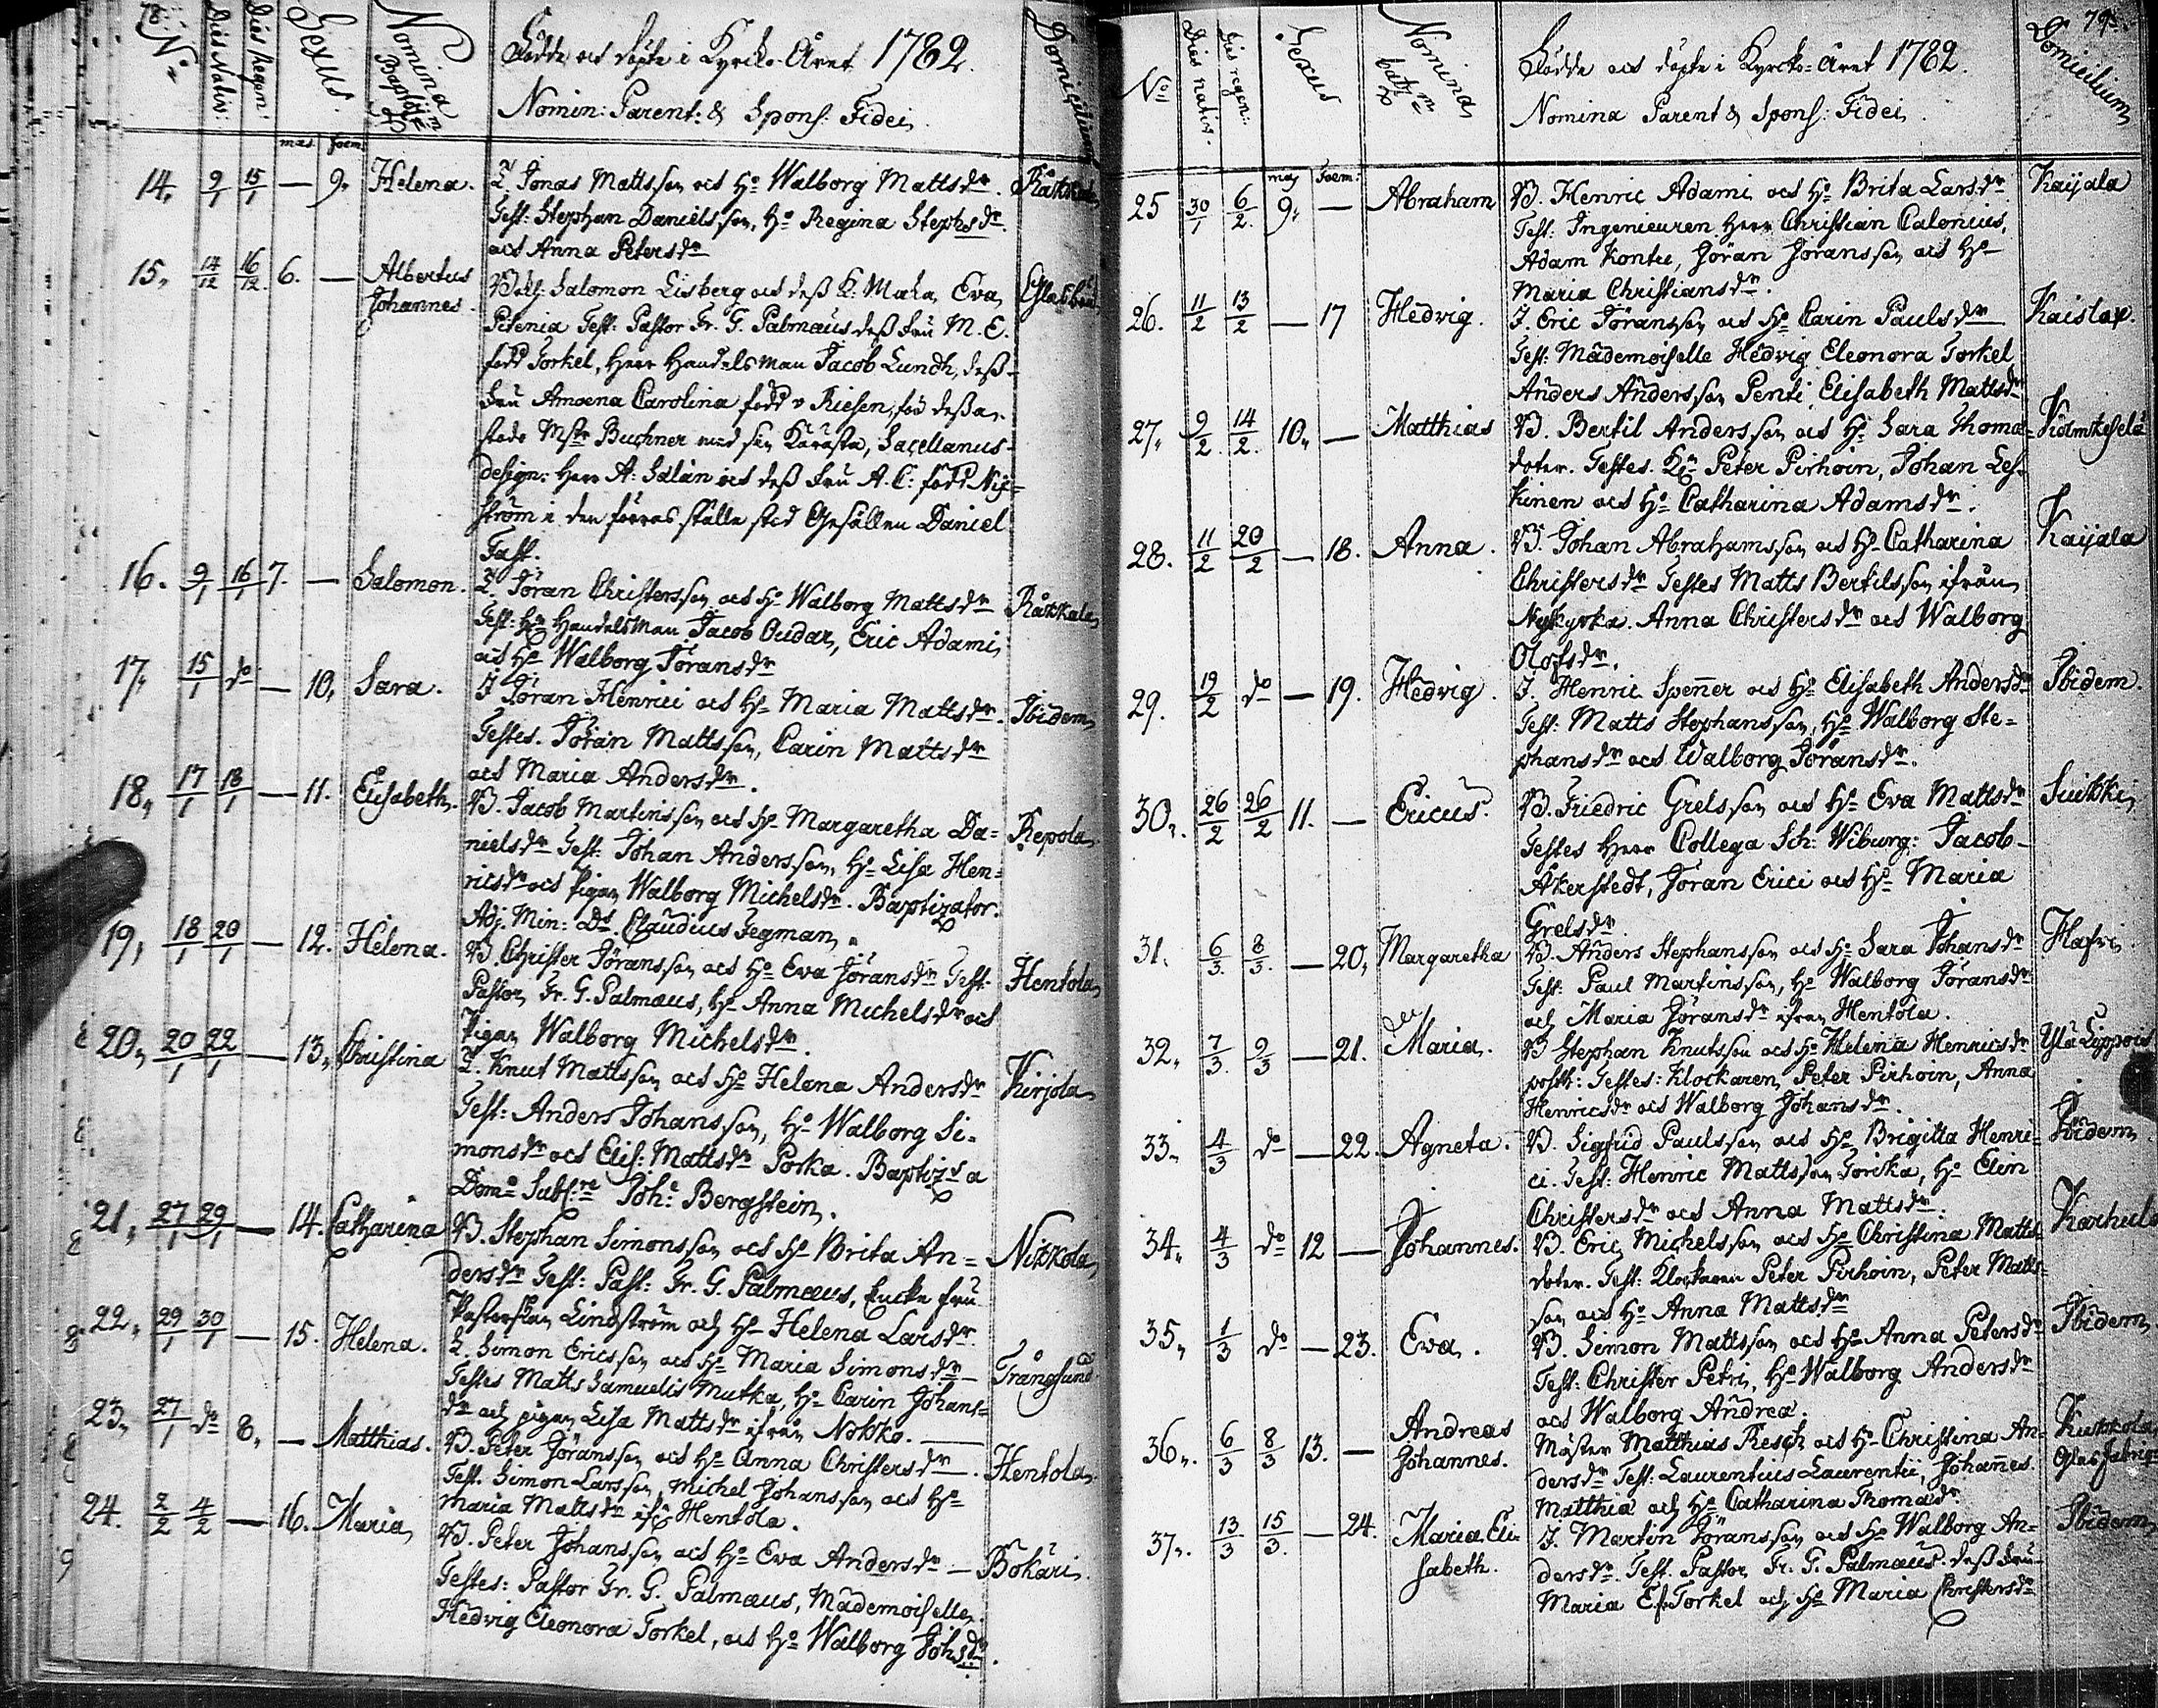 78.
No
Dies Nativ:
Dies Regen:
Sexus.
mas. foem:
Nomina Baptiz:m
Födde och döpte i Kyrko-Året 1782.
Nomin: Parent: & Spons: Fidei
Domicilium
14. 9/1 15/1 — 9. Helena. I. Jonas Mattsson och H:o Walborg Mattsdr.
Test: Stephan Danielsson, H:o Regina Stephsdr.
och Anna Petersdr
15. 14/12 16/12 6. — Albertus Salomon Lisberg och dess K. Maka Eva
Johannes. Petenia Test: Pastor Fr. G. Palmæus dess Fru M. E.
född Torkel, Herr Handelsman Jacob Lundh, dess
Fru Amoena Carolina född v Riesen, för dess
stode Mstr Buchner med sin Käresta, Sacellanus
design: Herr A: Salán och dess Fru A. C: född Ny=
ström i den förras ställe stod Gesällen Daniel
Fast.
16. 9/1 16/1 7. — Salomon. I. Jöran Christersson och H:o Walborg Mattsdr Räikkälä
Test: Hr Handelsman Jacob Oudar, Eric Adami
och H:o Walborg Jöransdr
17. 15/1 do — 10. Sara. I Jöran Henrici och H:o Maria Mattsdr. Ibidem
Testes. Jöran Mattsson, Carin Mattsdr
och Maria Andersdr.
18. 17/1 18/1 — 11. Elisabeth. B. Jacob Martinsson och H:o Margaretha Da= Repola
nielsdr Test: Johan Andersson, H:o Lisa Hen=
ricsdr och Pigan Walborg Michelsdr. Baptizator.
Adj. Min: Ds. Claudius Tegman.
19. 18/1 20/1 — 12. Helena. B. Christer Jöransson och H:o Eva Jöransdr Test: Hentola
Pastor Fr. G. Palmæus, H:o Anna Michelsdr och
Pigan Walborg Michelsdr.
20. 20/1 22/1 — 13. Christina I. Knut Mattsson och H:o Helena Andersdr Kirjola
Test: Anders Johansson, H:o Walborg Si=
monsdr och Elis: Mattsdr Porka. Baptizs a
Domo Joh: Bergstein.
21. 27/1 29/1 — 14. Catharina B. Stephan Simonsson och H:o Brita An= Nikkola
dersdr Test: Past: Fr. G. Palmæus, Enke Fru
Pastorskan Lindström och H:o Helena Larsdr.
22. 29/1 30/1 — 15. Helena. I. Simon Ericsson och H:o Maria Simonsdr Trångsund.
Testes Matts Samuelis Mutka, H:o Carin Johans=
dr och pigan Lisa Mattsdr ifrån Nokko.
23. 27/1 do 8. — Matthias. B. Peter Jöransson och H:o Anna Christersdr. Hentola
Test. Simon Larsson, Michel Johansson och H:o
Maria Mattsdr ifr. Hentola.
24. 2/2 4/2 — 16. Maria B. Peter Johansson och H:o Eva Andersdr Bokari.
Testes: Pastor Fr. G. Palmæus, Mademoiselle
Hedvig Eleonora Torkel, och H:o Walborg Johsdr.
79.
No
Dies nativ.
Dies regen:
Sexus
mas foem:
Nomina batz:m
Födde och döpte i Kyrcko-Året 1782.
Nomina Parent & Spons: Fidei
Domicilium
25 30/1 6/2. 9. — Abraham B. Henric Adami och H:o Brita Larsdr Kaijala
Test. Ingenieuren Herr Christian Calonius,
Adam Kontu, Jöran Jöransson och H:o
Maria Christiansdr.
26. 11/2 13/2 — 17 Hedvig. I. Eric Jöransson och H:o Carin Paulsdr Kaislax.
Test: Mademoiselle Hedvig Eleonora Torkel
Anders Andersson Penti, Elisabeth Mattsdr
27. 9/2. 14/2. 10. — Matthias B. Bertil Andersson och H:o Sara Thomæ=
doter. Testes. Peter Pirhoin, Johan Les=
kinen och H:o Catharina Adamsdr.
28. 11/2 20/2 — 18. Anna. B. Johan Abrahamsson och H:o Catharina Kaijala
Christersdr Testes Matts Bertilsson ifrån
Nykyrka. Anna Christersdr och Walborg
Olofsdr.
29. 19/2 do — 19. Hedvig. I. Henric Spenner och H:o Elisabeth Andersdr Ibidem.
Test: Matts Stephansson, H:o Walborg Ste=
phansdr och Walborg Jöransdr.
30. 26/2 26/2 11. — Ericus. B. Friedric Grelsson och H:o Eva Mattsdr Suikki
Testes Herr Collega Sch: Wiburg: Jacob
Åkerstedt, Jöran Erici och H:o Maria
Grelsdr.
31. 6/3. 8/3. — 20. Margaretha B. Anders Stephansson och H:o Sara Johansdr
Test: Paul Martinsson, H:o Walborg Jöransdr
och Maria Jöransdr ifrån Hentola.
32. 7/3. 9/3 — 21. Maria. B Stephan Knutsson och H:o Helena Henricsdr Ylä Lippois
posth: Testes: Klockaren Peter Pirhoin, Anna
Henricsdr och Walborg Johansdr.
33. 4/3 do — 22. Agneta. B. Sigfrid Paulsson och H:o Brigitta Henri= Ibidem
ci. Test: Henric Mattsson Torikka, H:o Elin
Christersdr och Anna Mattsdr.
34. 4/3 do 12 — Johannes. B. Eric Michelsson och H:o Christina Matts Karhula
doter. Test: Klockaren Peter Pirhoin, Peter Matts=
son och H:o Anna Mattsdr
35. 1/3 do — 23. Eva. B. Simon Mattsson och H:o Anna Petersdr Ibidem.
Test: Christer Petri, H:o Walborg Andersdr
och Walborg Andreæ.
36. 6/3 8/3 13. — Andreas Mäster Matthias Resch och H:o Christina An= Kukkola
Johannes. dersdr Test. Laurentius Laurentii, Johannes Glas fabriq
Matthiæ och H:o Catharina Thomædr.
37. 13/3 15/3. — 24. Maria Eli I. Martin Jöransson och H:o Walborg An= Ibidem
sabeth. dersdr. Test. Pastor Fr. G. Palmæus. dess Fru
Maria E. Torkel och H:o Maria Christersdr